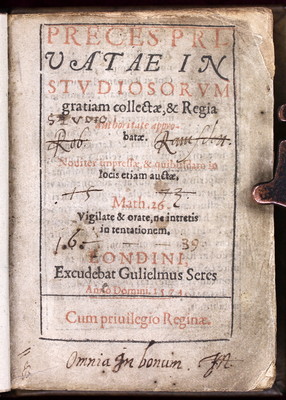 PRECES PRI
VATAE IN
STVDIOSORVM
gratiam collectæ, & Regia
authoritate appro-
batæ.
Rob.
Nouiter impressæ, & quibusdam in
locis etiam auctæ.
Math. 26.
Vigilate & orate, ne intretis
in tentationem.
16 39.
LONDINI,
Excudebat Gulielmus Seres
Anno Domini.
Cum priuilegio Reginæ.
Omnia In bonum.